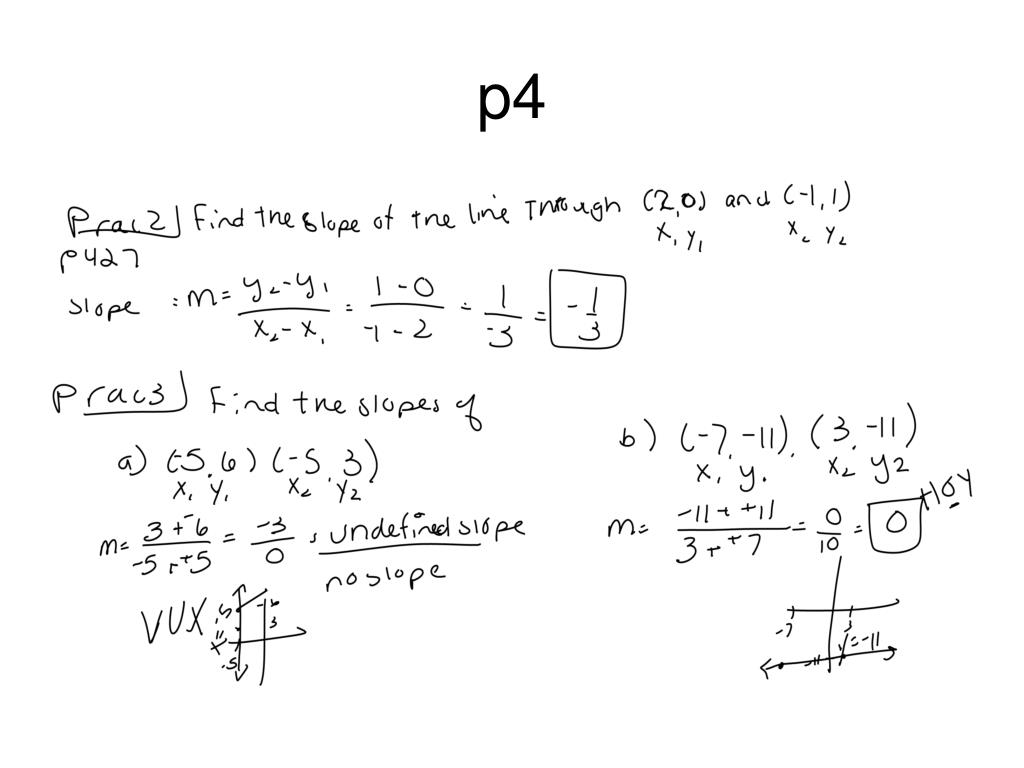 p4
Prac2 Find the slope of the line Through (2,0) and (-1,1)
x₁ y₁ x₂ y₂
p427
slope : m = y₂-y₁ / x₂-x₁ = 1-0 / -1-2 = 1/-3 = -1/3
Prac3 Find the slopes of
a) (-5,6) (-5,3)
x₁ y₁ x₂ y₂
m = 3+-6 / -5++5 = -3/0 : undefined slope
no slope
VUX
6
3
x=
-5
b) (-7,-11), (3,-11)
x₁ y₁ x₂ y₂
m = -11++11 / 3++7 = 0/10 = 0 HOY
-7 3
y=-11
-11